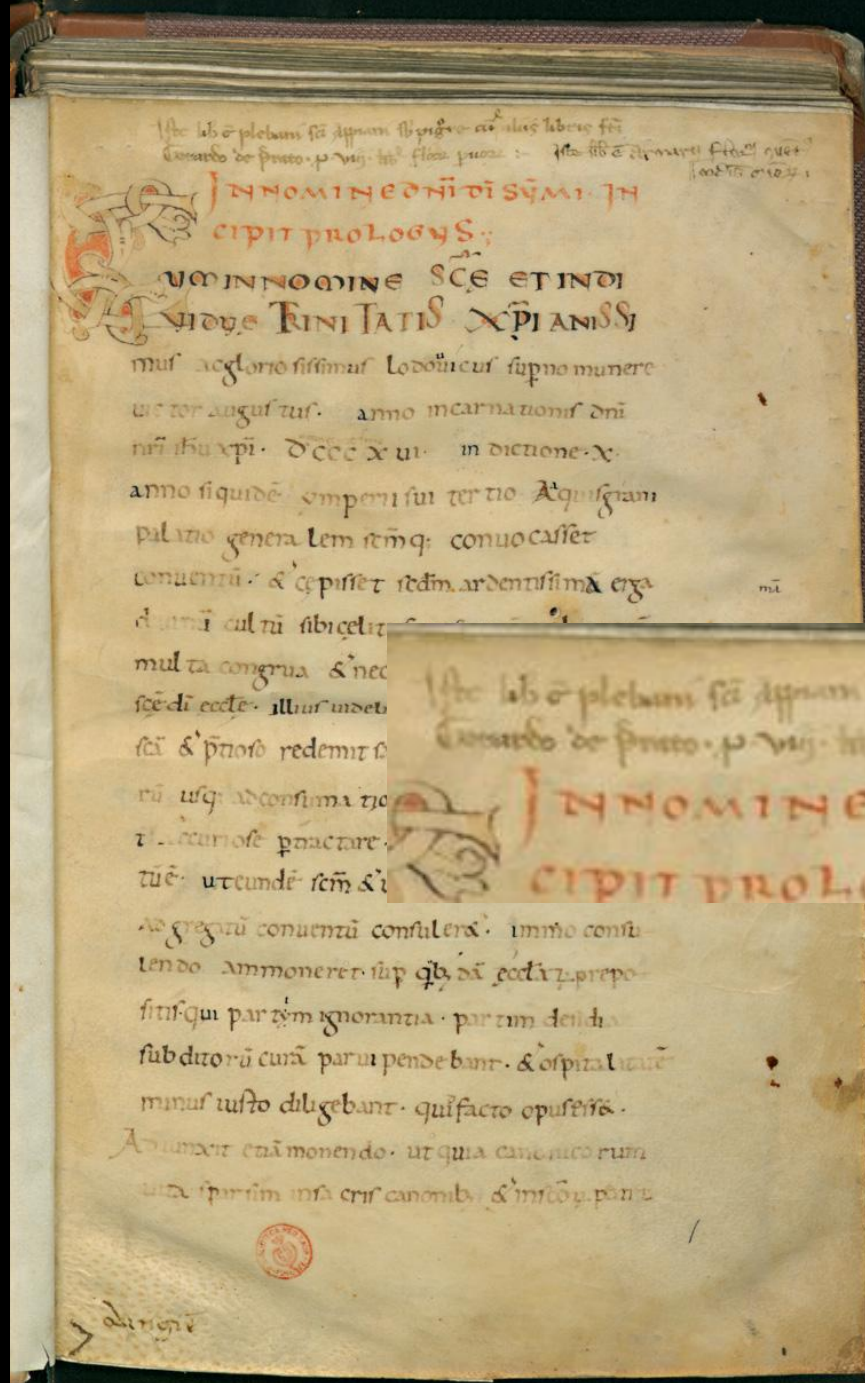 Iste lib ē plebani scī Appiani
Gerardo de Prato · p viij · lib flor puor
IN NOMINE DNĪ DĪ SŪMI · IN
CIPIT PROLOGUS ·,
CUM IN NOMINE SCĒ ET INDI
VIDUE TRINITATIS XP̄IANISSI
mus ac gloriosissimus Lodouuicus supno munere
uictor augustus · anno incarnationis dnī
nrī ihu xpī · DCCCXVI · indictione · X ·
anno siquidē imperii sui tertio Aquisgrani
palatio generalem scm̄q; conuocasset
conuentū · & cępisset scdm̄ ardentissimā erga
mā
diuinū cultū sibi celit
multa congrua & nec
scē dī eccle · illius
scī & p̄tioso redemit s
rū usq; ad consumatio
curiose ptractare ·
tuē · ut eundē scm̄ &
adgregatū conuentū consuleret · immo consu
lendo ammoneret · sup qb; dā eccl prepo
sitis qui partim ignorantia · partim desidia
subditorū curā paruipendebant · & ospitalitatē
minus iusto diligebant · quį facto opus esset ·
Adiunxit etiā monendo · ut quia canonicorum
uita sparsim in sacris canonib; &
Iste lib ē plebani scī Appiani
Gerardo de Prato · p viij ·
IN NOMINE
CIPIT PROLO